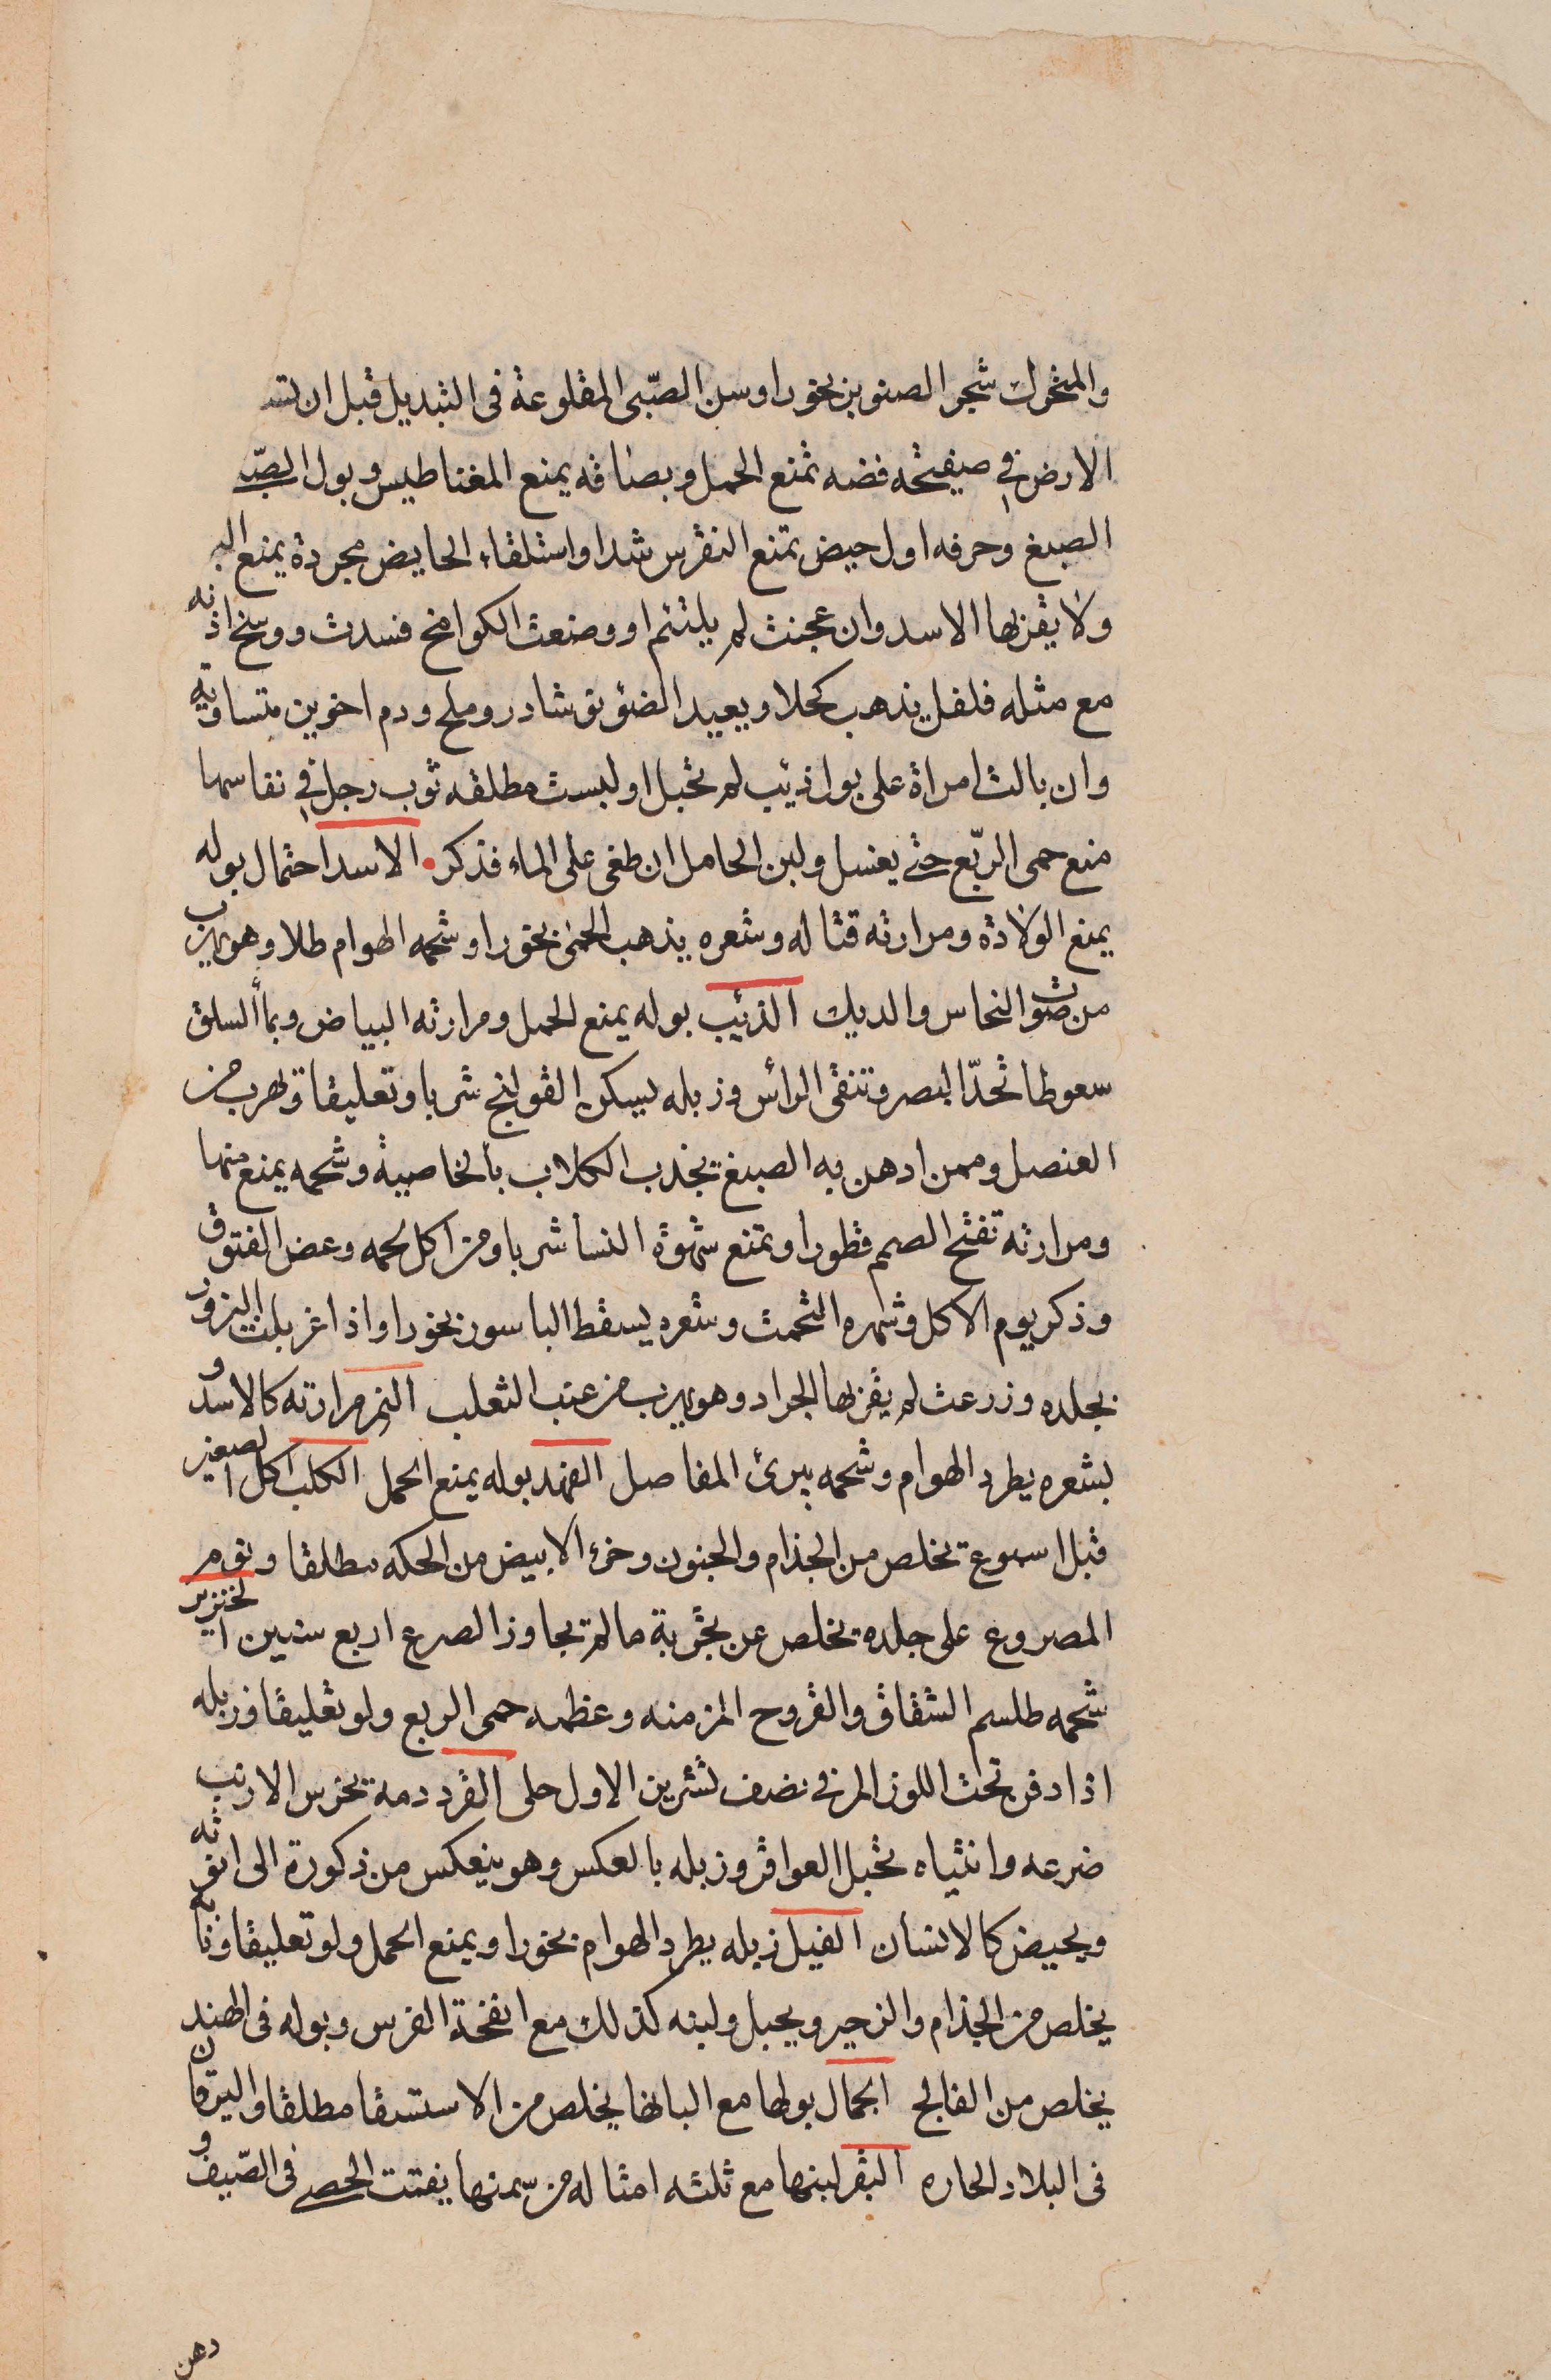 والمتحرك شجر الصنوبر بخورا وسن الصّبى المقلوعة فى التبديل قبل ان تتـ
الارض فى صيفيحه فضه تمنع الحمل وبصاقه يمنع المغناطيس وبول الصبّـ
الصبغ وحرفه اول حيض تمنع النقرس شدا واستلقاء الحايض مجردة يمنع البر
ولا يقربها الاسد وان عجنت لم يلتئم او وضعت الكوامخ فسدت ووسخ اذنه
مع مثله فلفل يذهب كحلا ويعيد الضؤ نوشادر وملح ودم اخوين متساويه
وان بالت امراة على بول ذئيب لم تحبل او لبست مطلقه ثوب رجل فى نفاسها
منع حمى الربّع حتى يغسل ولبن الحامل ان طغى على الماء فذكر الاسد احتمال بوله
يمنع الولادة ومرارته قتاله وشعره يذهب الحمى بخورا وشحمه الهوام طلا وهو يهرب
من صوت النحاس والديك الذئيب بوله يمنع الحمل ومرارته البياض وبمأ السلق
سعوطا تحدّ البصر وتنقى الرأس وزبله يسكن القولنج شربا وتعليقا ويهرب من
العنصل وممن ادهن به الصبغ تجذب الكلاب بالخاصية وشحمه يمنع منها
ومرارته تفتح الصمم قطورا وتمنع شهوة النسا شربا ومن اكل لحمه وعض الفتوق
وذكر يوم الاكل وشهره التحمت وشعره يسقط الباسور بخورا واذا غربلت البزور
بجلده وزرعت لم يقربها الجراد وهو يهرب من عنب الثعلب النمر مرارته كالاسد و
بشعره يطرد الهوام وشحمه يبرئ المفاصل الفهد بوله يمنع الحمل الكلب اكل الصغير
قبل اسبوع تخلص من الجذام والجنون وخرء الابيض من الحكه مطلقا ونوم
المصروع على جلده يخلص عن تجربة ما لم يجاوز الصرع اربع سنين الخنزير
شحمه طلسم الشقاق والقروح المزمنه وعظمه حمى الربع ولو تعليقا وزبله
اذا دفن تحت اللوز المر فى نصف تشرين الاول حلى القرد دمه يخرس الارنب
ضرعه وانثياه تحبل العواقر وزبله بالعكس وهو ينعكس من ذكورة الى انوثه
ويحيض كالانسان الفيل زبله يطرد الهوام بخورا ويمنع الحمل ولو تعليقا ونابه
يخلص من الجذام والزحير ويحبل ولبنه كذلك مع انفحة الفرس وبوله فى الهند
يخلص من الفالج الجمال بولها مع البانها يخلص من الاستسقا مطلقا واليرقان
فى البلاد الحاره البقر لبنها مع ثلثه امثاله من سمنها يفتت الحصى فى الصّيف و
دهن